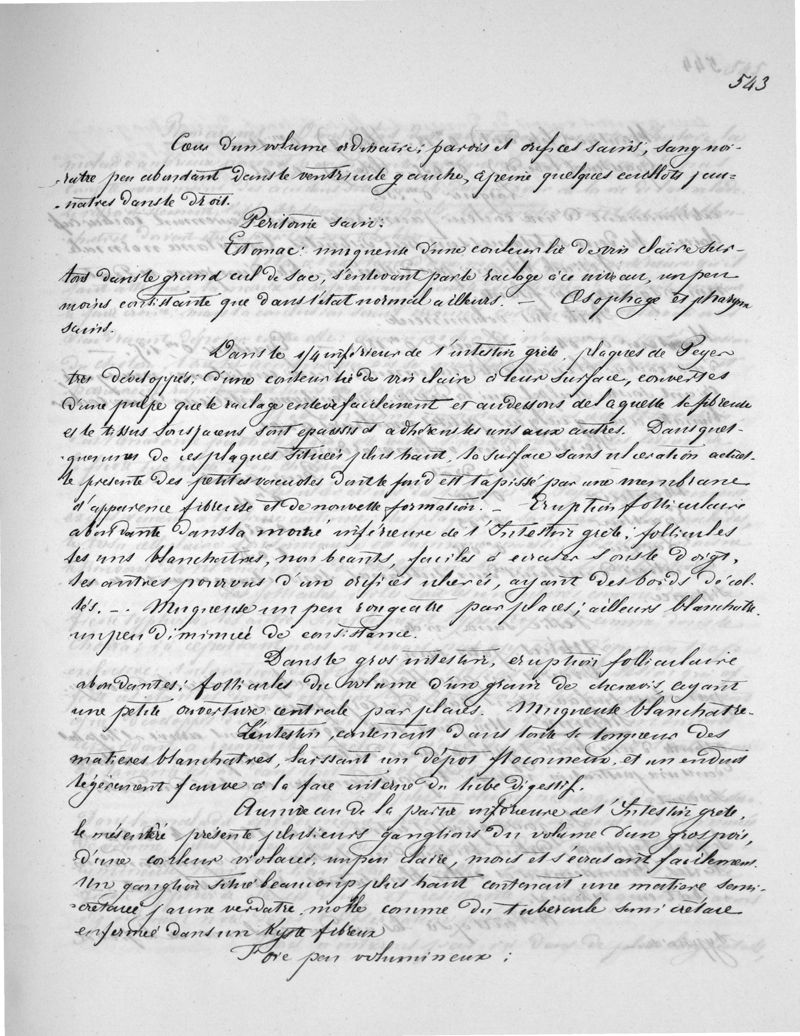 543
Cœur d'un volume ordinaire; parois et orifices sains, sang noi-
râtre peu abondant dans le ventricule gauche, à peine quelques caillots jau-
nâtres dans le droit.
Péritoine sain:
Estomac: muqueuse d'une couleur lie de vin claire sur-
tout dans le grand cul de sac, s'enlevant par le raclage à ce niveau, un peu
moins consistante que dans l'état normal ailleurs. — Œsophage et pharynx
sains.
Dans le 1/4 inférieur de l'intestin grèle, plaques de Peyer
très développés, d'une couleur lie de vin claire à leur surface, couvertes
d'une pulpe que le raclage enlève facilement et au dessous de laquelle la fibreuse
et le tissus sous jacens sont épaissis et adhérens les uns aux autres. Dans quel-
ques unes de ces plaques situées plus haut, la surface sans ulcération actuel-
le présente des petites vacuoles dont le fond est tapissé par une membrane
d'apparence fibreuse et de nouvelle formation. — Eruption folliculaire
abondante dans la moitié inférieure de l'Intestin grèle; follicules
les uns blanchâtres, non béants, faciles à écraser sous le doigt,
les autres pourvus d'un orifices ulcérés, ayant des bords décol-
lés. — Muqueuse un peu rougeâtre par places; ailleurs blanchâtre
un peu diminuée de consistance.
Dans le gros intestin, éruption folliculaire
abondantes; follicules du volume d'un grain de chenevis, ayant
une petite ouverture centrale par places. Muqueuse blanchâtre.
L'intestin, contenant dans toute sa longueur des
matières blanchâtres, laissant un dépôt floconneux, et un enduit
légèrement fauve à la face interne du tube digestif.
Au niveau de la partie inférieure de l'Intestin grèle,
le mésentère présente plusieurs ganglions du volume d'un gros pois,
d'une couleur violacée, un peu claire, mous et s'écrasant facilement.
Un ganglion situé beaucoup plus haut contenait une matière semi-
crétacée jaune verdâtre, molle comme du tubercule semi crétacé
enfermée dans un Kyste fibreux
Foie peu volumineux;